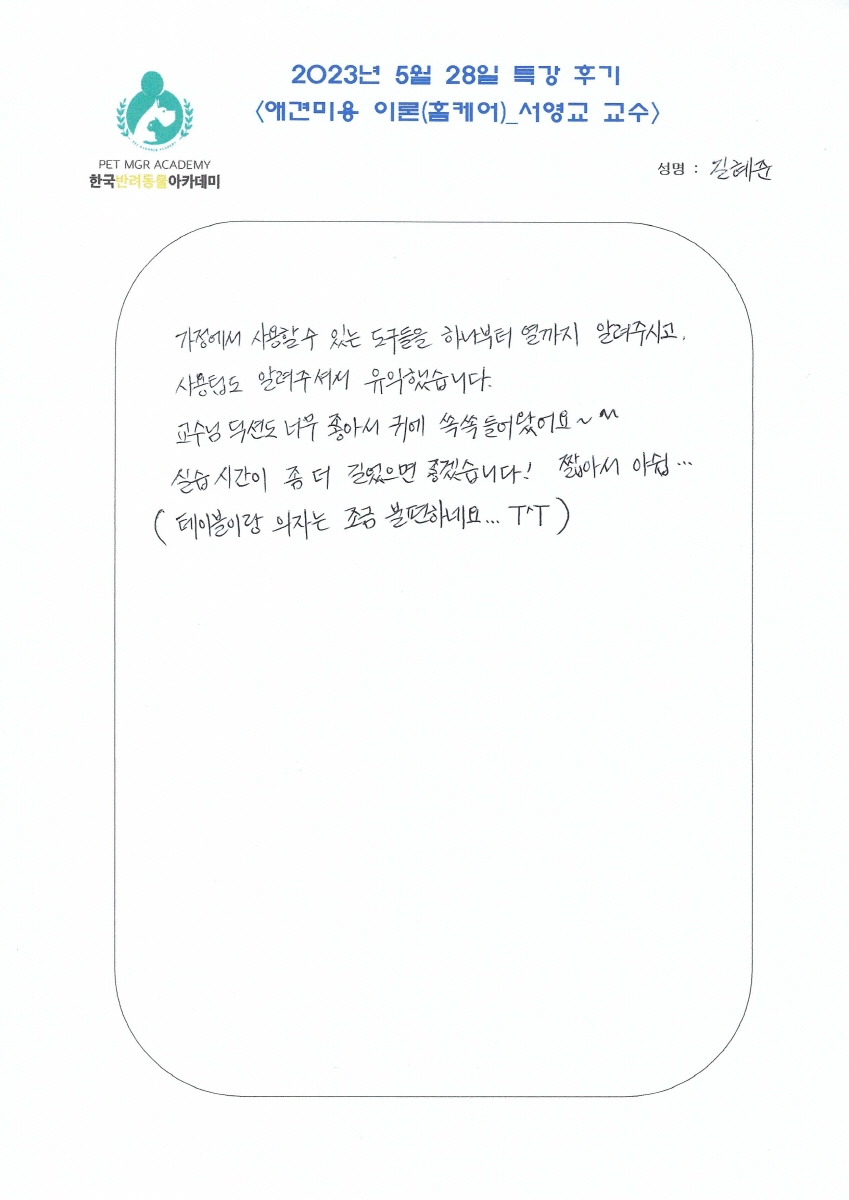 2023년 5월 28일 특강 후기
<애견미용 이론(홈케어)_서영교 교수>
PET MGR ACADEMY
한국반려동물아카데미
성명 : 길혜준
가정에서 사용할 수 있는 도구들을 하나부터 열까지 알려주시고,
사용팁도 알려주셔서 유익했습니다.
교수님 딕션도 너무 좋아서 귀에 쏙쏙 들어왔어요~^^
실습시간이 좀 더 길었으면 좋겠습니다! 짧아서 아쉽...
(테이블이랑 의자는 조금 불편하네요... T^T)